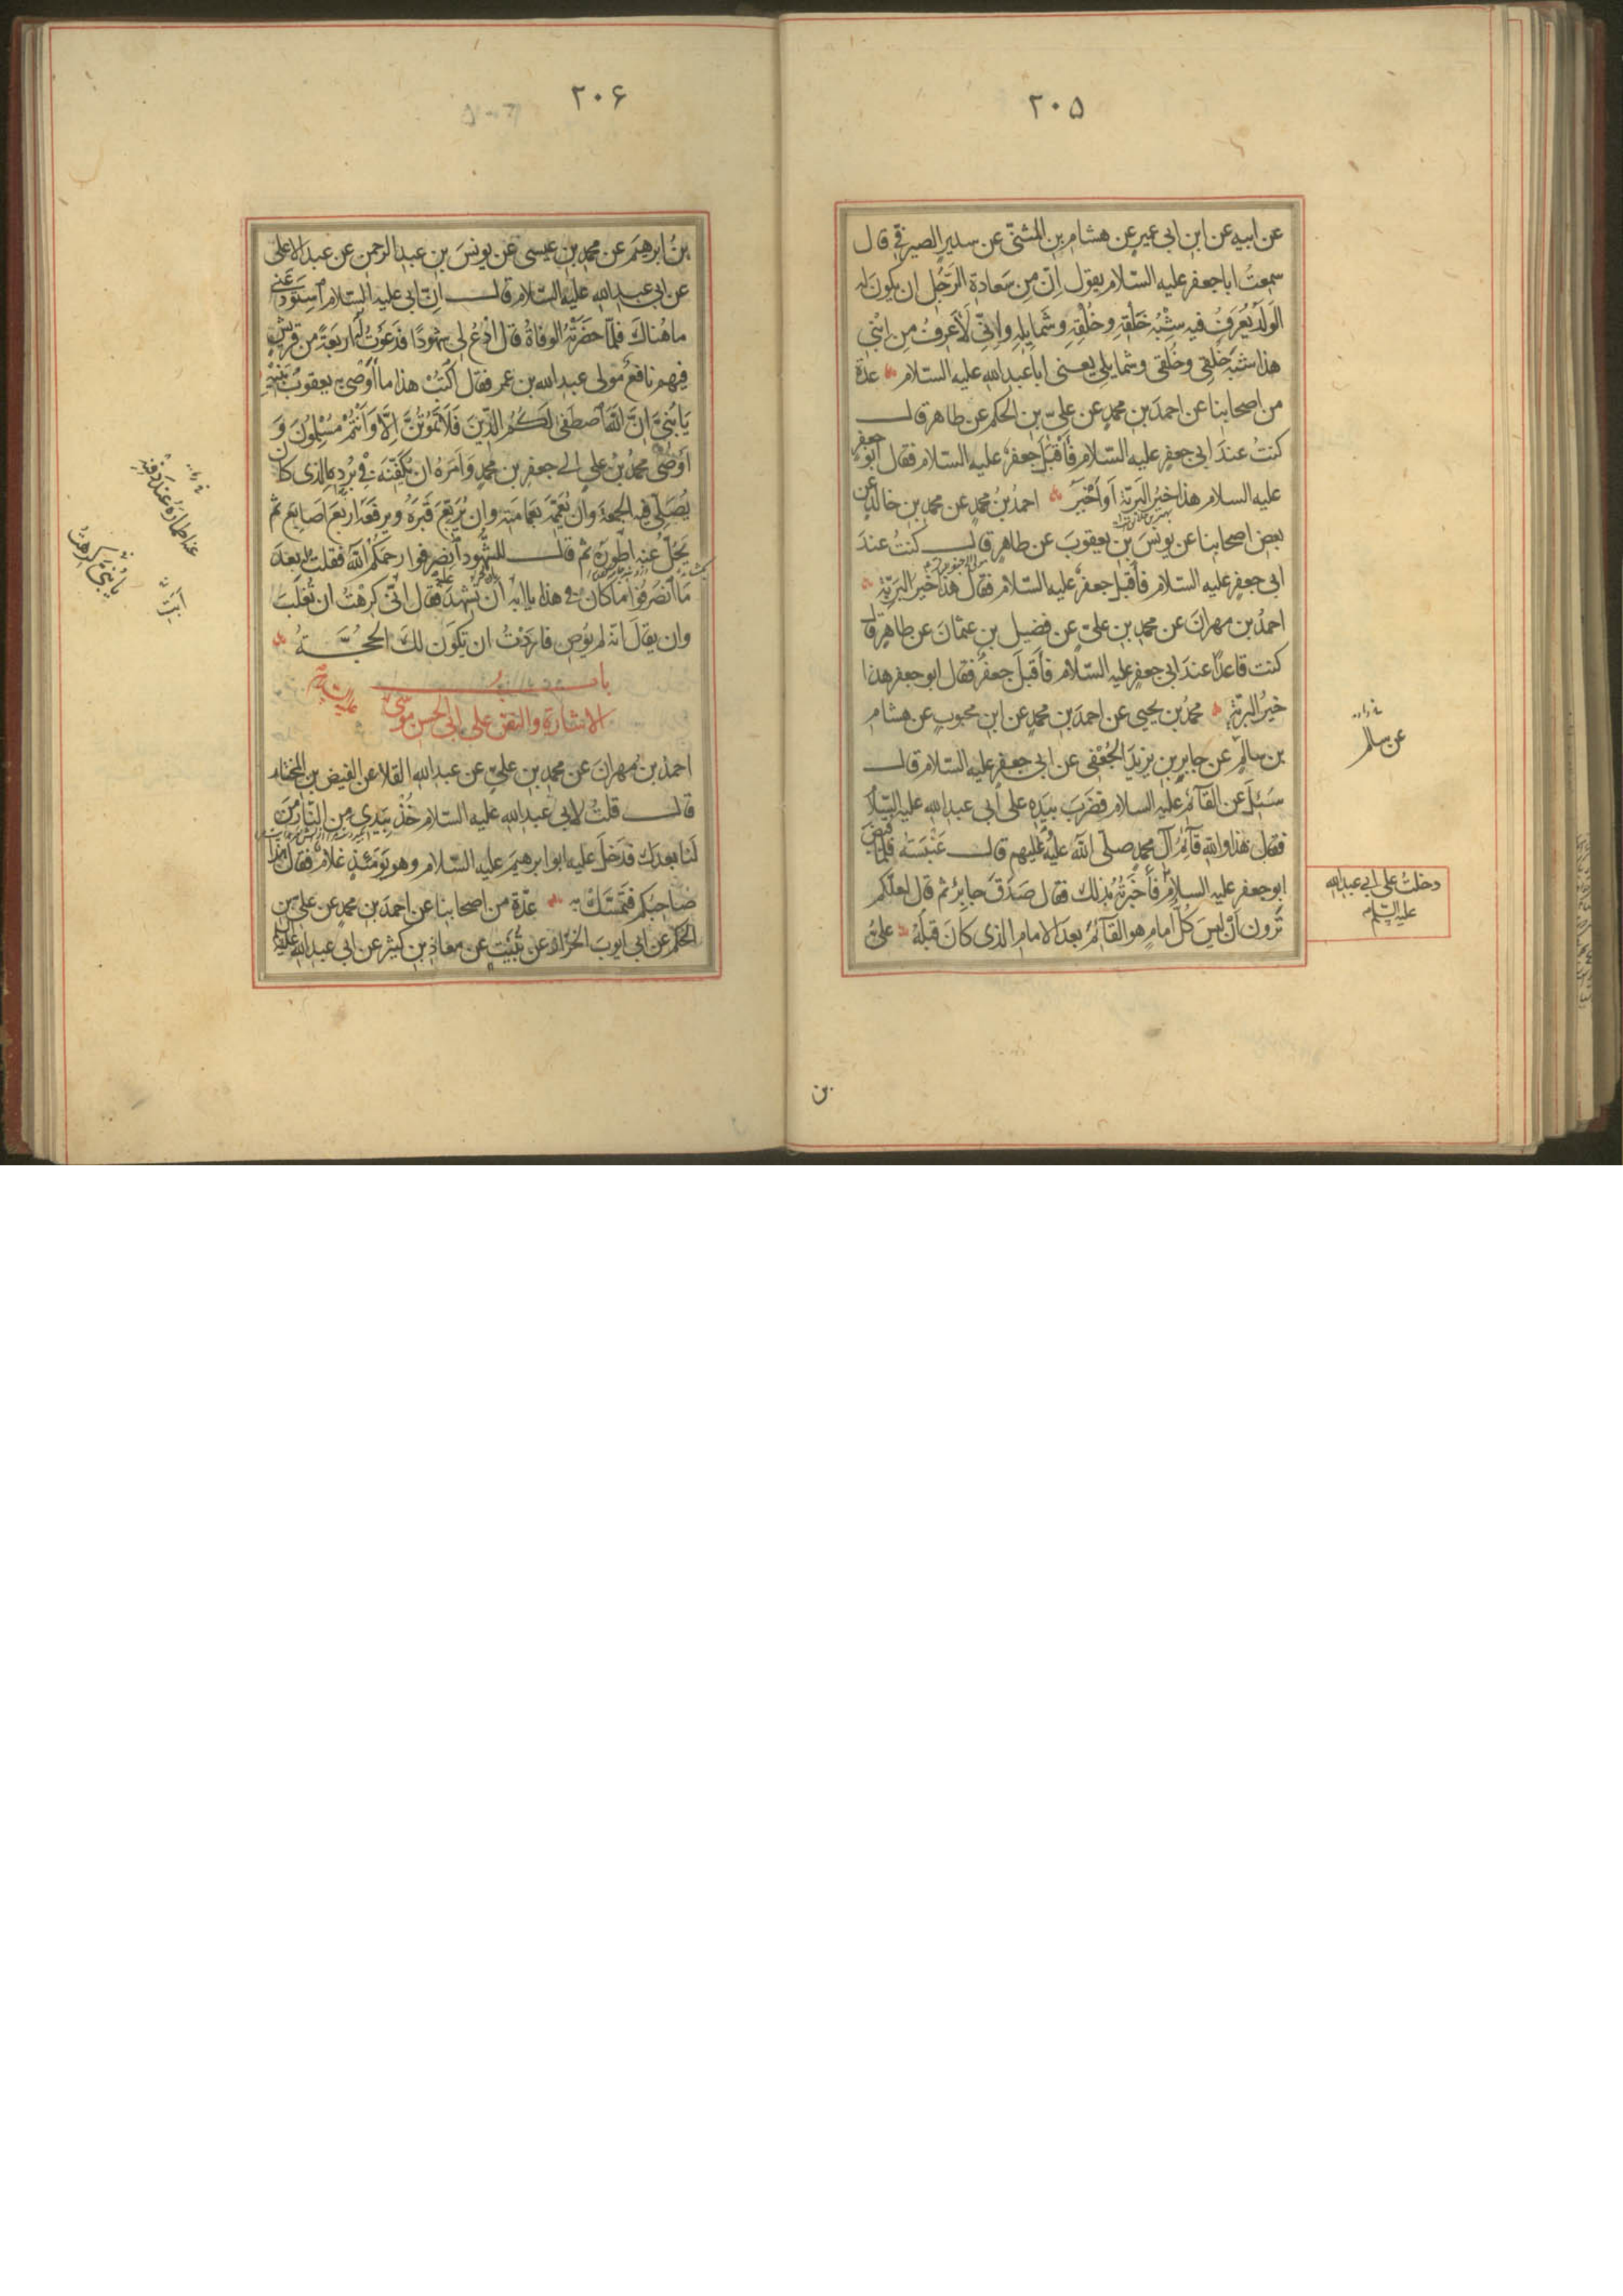 ٢٠٥
عن ابيه عن ابن ابى عمير عن هشام بن المثنّى عن سدير الصيرفى قال
سمعتُ ابا جعفر عليه السّلام يقول اِنّ مِن سَعادة الرَّجُل ان يكونَ له
الوَلَدُ يُعرَفُ فيه شِبْهُ خَلْقِهِ وخُلُقِهِ وشَمايلِهِ واِنّى لَاَعرِفُ مِن ابْنى
هذا شبَهَ خَلقى وخُلقى وشمايلى يعنى ابا عبد الله عليه السّلام عدّة
من اصحابنا عن احمدَ بن محمدٍ عن علىّ بن الحكم عن طاهر قال
كنتُ عندَ ابى جعفرٍ عليه السّلام فَاَقْبَلَ جعفرٌ عليه السّلام فقال ابو جعفر
عليه السلام هذا خيرُ البَريّة اَو اَخْيَرُ احمدُ بنُ محمدٍ عن محمد بن خالدٍ عن
بعض اصحابنا عن يونسَ بن يعقوبَ عن طاهرٍ قال كنتُ عندَ
ابى جعفرٍ عليه السّلام فأقبل جعفرٌ عليه السّلام فقال هذا خيرُ البَريّة
احمدُ بن مهرانَ عن محمد بن علىّ عن فضيل بن عثمانَ عن طاهرٍ قال
كنت قاعدًا عندَ ابى جعفرٍ عليه السّلام فأقبَلَ جعفرٌ فقال ابو جعفر هذا
خيرُ البريّة محمدُ بن يحيى عن احمدَ بن محمدٍ عن ابن محبوبٍ عن هشام
بن سالمٍ عن جابرِ بن يزيدَ الجُعْفى عن ابى جعفرٍ عليه السّلام قال
سُئِلَ عن القآئم عليه السلام فضَربَ بيَدِه على ابى عبد الله عليه السّلام
فقال هذا والله قآئمُ آلِ محمدٍ صلّى الله عليه عليهم قال عَنْبَسَة فلمّا قُبِضَ
ابو جعفر عليه السلام فأخبَرتُهُ بذلك فقال صَدَقَ جابرٌ ثم قال لعلّكم
تَرَون اَنْ ليسَ كُلُّ امامٍ هو القآئمُ بعدَ الامام الذى كانَ قبلَهُ علىُّ
عن سالم
دخلتُ على ابى عبد الله
عليه السّلم
بن
٢٠۶
بنُ ابرهيمَ عن محمد بن عيسى عَن يونسَ بن عبد الرحمن عن عبد الاعلى
عن ابى عبد الله عليه السّلام قال اِنّ ابى عليه السّلام استودعَنى
ما هُناكَ فلمّا حضَرَتْهُ الوفاةُ قال ادْعُ لى شهُودًا فدَعَوتُ له اربعَةً من قريشٍ
فيهم نافعٌ مَولى عبد الله بن عمر فقال اكتُبْ هذا ما اَوْصى به يعقوبُ بَنيهِ
يَا بُنَىَّ اِنَّ اللّٰهَ اصْطَفى لَكُمُ الدّينَ فَلَا تَمُوتُنَّ اِلَّا وَاَنْتُمْ مُسْلِمُونَ وَ
اَوْصٰى محمدُ بنُ علىٍّ الى جعفر بن محمدٍ وَاَمَرهُ ان يُكَفِّنَه فى بُردِه الّذى كان
يُصَلّى فيه الجمعةَ وان يُعَمِّمَه بعَمامَتِه وان يُرَبِّعَ قَبْرَهُ ويرفَعَه اربَعَ اَصابعَ ثم
يَحُلَّ عنه اطمورَهُ ثم قال للشّهُود انصرفوا رحمكم الله فقلتُ له بعدَ
ما انصَرَفُوا ما كان فى هذا يا ابه ان تُشهِدَ عليه فقال انّى كرِهْتُ ان تُغلَبَ
وان يقال انّه لم يُوصِ فاردْتُ ان تكون لك الحجّةُ
بابُ
الاشارة والنّصّ على ابى الحسن موسى عليه السّلام
احمدُ بنُ مهرانَ عن محمد بن علىٍّ عن عبد الله القلا عن الفيض بن المختار
قال قلتُ لابى عبد الله عليه السّلام خُذْ بيَدى مِن النّار مَن
لنا بعدَك فدَخلَ عليه ابو ابرهيمَ عليه السّلام وهو يَومَئذٍ غلامٌ فقال هذا
صاحبُكم فتمسّكْ به عدّة من اصحابنا عن احمدَ بن محمدٍ عن على بن
الحكم عن ابى ايّوبَ الخزّاز عن ثُبَيتٍ عن معاذ بن كثير عن ابى عبد الله عليه السّلام
عند اطماره عند دفنه
يا بُنىَّ كرِهتُ